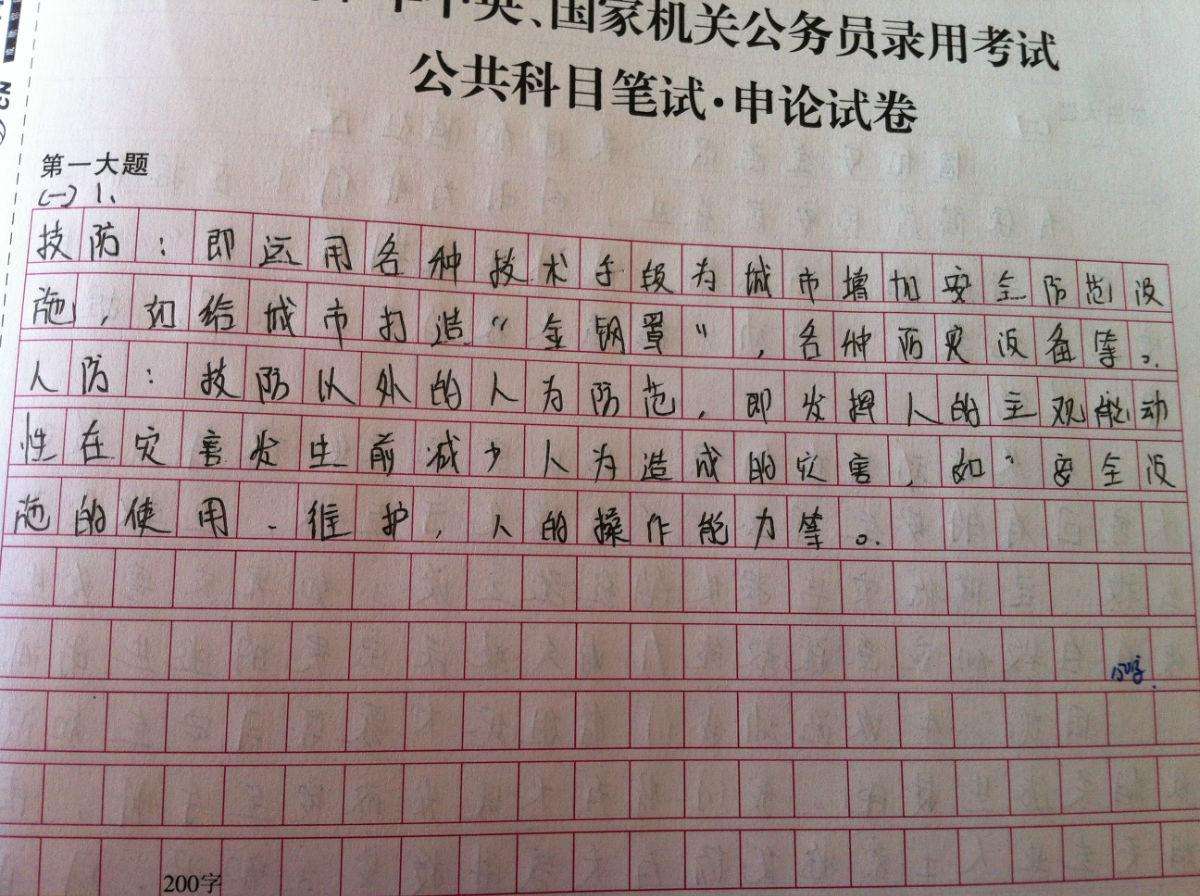 中央、国家机关公务员录用考试
公共科目笔试·申论试卷
第一大题
(一) 1、
技防：即运用各种技术手段为城市增加安全防范设
施，如给城市打造“金钢罩”，各种防灾设备等。
人防：技防以外的人为防范，即发挥人的主观能动
性在灾害发生前减少人为造成的灾害，如：安全设
施的使用、维护，人的操作能力等。
150字
200字
CN